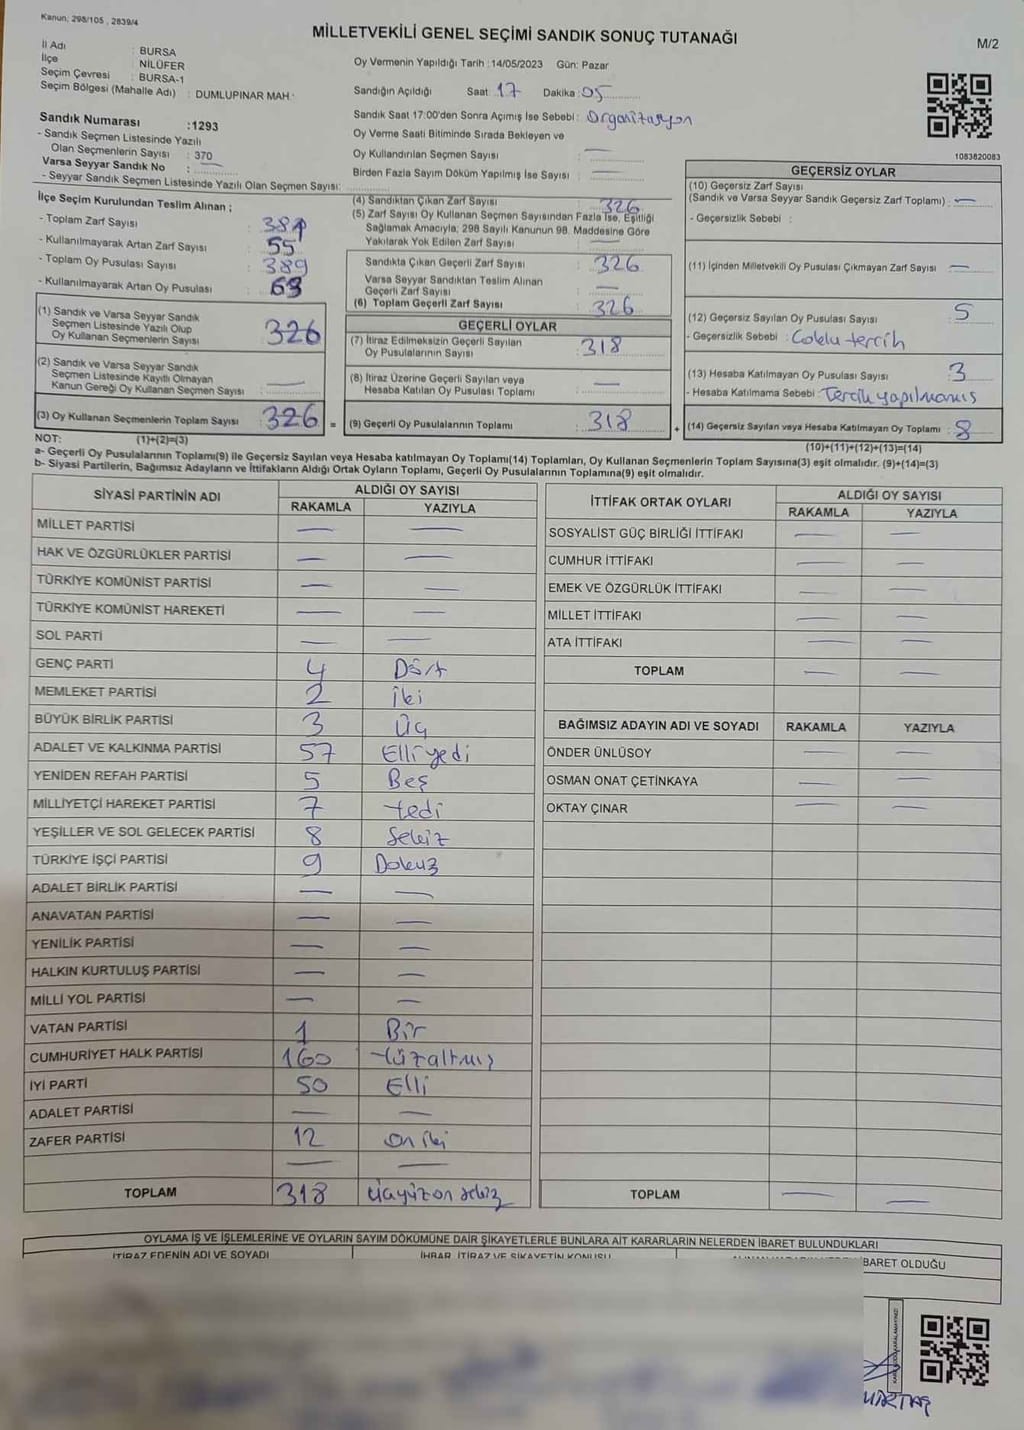 Kanun; 298/105 , 2839/4
MİLLETVEKİLİ GENEL SEÇİMİ SANDIK SONUÇ TUTANAĞI
M/2
İl Adı : BURSA
İlçe : NİLÜFER
Seçim Çevresi : BURSA-1
Seçim Bölgesi (Mahalle Adı) : DUMLUPINAR MAH.
Oy Vermenin Yapıldığı Tarih :14/05/2023 Gün: Pazar
Sandığın Açıldığı Saat 17 Dakika :05
Sandık Saat 17:00'den Sonra Açımış İse Sebebi : Organizasyon
Oy Verme Saati Bitiminde Sırada Bekleyen ve
Oy Kullandırılan Seçmen Sayısı : —
Birden Fazla Sayım Döküm Yapılmış İse Sayısı : —
1083820083
Sandık Numarası :1293
- Sandık Seçmen Listesinde Yazılı
Olan Seçmenlerin Sayısı : 370
Varsa Seyyar Sandık No : —
- Seyyar Sandık Seçmen Listesinde Yazılı Olan Seçmen Sayısı:
İlçe Seçim Kurulundan Teslim Alınan ;
- Toplam Zarf Sayısı : 381
- Kullanılmayarak Artan Zarf Sayısı : 55
- Toplam Oy Pusulası Sayısı : 389
- Kullanılmayarak Artan Oy Pusulası : 63
(1) Sandık ve Varsa Seyyar Sandık
Seçmen Listesinde Yazılı Olup
Oy Kullanan Seçmenlerin Sayısı : 326
(2) Sandık ve Varsa Seyyar Sandık
Seçmen Listesinde Kayıtlı Olmayan
Kanun Gereği Oy Kullanan Seçmen Sayısı : —
(3) Oy Kullanan Seçmenlerin Toplam Sayısı : 326 =
(4) Sandıktan Çıkan Zarf Sayısı : 326
(5) Zarf Sayısı Oy Kullanan Seçmen Sayısından Fazla İse, Eşitliği
Sağlamak Amacıyla; 298 Sayılı Kanunun 98. Maddesine Göre
Yakılarak Yok Edilen Zarf Sayısı : —
Sandıkta Çıkan Geçerli Zarf Sayısı : 326
Varsa Seyyar Sandıktan Teslim Alınan
Geçerli Zarf Sayısı : —
(6) Toplam Geçerli Zarf Sayısı : 326
GEÇERLİ OYLAR
(7) İtiraz Edilmeksizin Geçerli Sayılan
Oy Pusulalarının Sayısı : 318
(8) İtiraz Üzerine Geçerli Sayılan veya
Hesaba Katılan Oy Pusulası Toplamı : —
(9) Geçerli Oy Pusulalarının Toplamı : 318 +
GEÇERSİZ OYLAR
(10) Geçersiz Zarf Sayısı
(Sandık ve Varsa Seyyar Sandık Geçersiz Zarf Toplamı) : —
- Geçersizlik Sebebi :
(11) İçinden Milletvekili Oy Pusulası Çıkmayan Zarf Sayısı : —
(12) Geçersiz Sayılan Oy Pusulası Sayısı : 5
- Geçersizlik Sebebi : Çoklu tercih
(13) Hesaba Katılmayan Oy Pusulası Sayısı : 3
- Hesaba Katılmama Sebebi : Tercih yapılmamış
(14) Geçersiz Sayılan veya Hesaba Katılmayan Oy Toplamı : 8
NOT: (1)+(2)=(3)
(10)+(11)+(12)+(13)=(14)
a- Geçerli Oy Pusulalarının Toplamı(9) ile Geçersiz Sayılan veya Hesaba katılmayan Oy Toplamı(14) Toplamları, Oy Kullanan Seçmenlerin Toplam Sayısına(3) eşit olmalıdır. (9)+(14)=(3)
b- Siyasi Partilerin, Bağımsız Adayların ve İttifakların Aldığı Ortak Oyların Toplamı, Geçerli Oy Pusulalarının Toplamına(9) eşit olmalıdır.
SİYASİ PARTİNİN ADI ALDIĞI OY SAYISI
RAKAMLA YAZIYLA
MİLLET PARTİSİ — —
HAK VE ÖZGÜRLÜKLER PARTİSİ — —
TÜRKİYE KOMÜNİST PARTİSİ — —
TÜRKİYE KOMÜNİST HAREKETİ — —
SOL PARTİ — —
GENÇ PARTİ 4 Dört
MEMLEKET PARTİSİ 2 İki
BÜYÜK BİRLİK PARTİSİ 3 Üç
ADALET VE KALKINMA PARTİSİ 57 Elliyedi
YENİDEN REFAH PARTİSİ 5 Beş
MİLLİYETÇİ HAREKET PARTİSİ 7 Yedi
YEŞİLLER VE SOL GELECEK PARTİSİ 8 Sekiz
TÜRKİYE İŞÇİ PARTİSİ 9 Dokuz
ADALET BİRLİK PARTİSİ — —
ANAVATAN PARTİSİ — —
YENİLİK PARTİSİ — —
HALKIN KURTULUŞ PARTİSİ — —
MİLLİ YOL PARTİSİ — —
VATAN PARTİSİ 1 Bir
CUMHURİYET HALK PARTİSİ 160 Yüzaltmış
İYİ PARTİ 50 Elli
ADALET PARTİSİ — —
ZAFER PARTİSİ 12 on iki
— —
TOPLAM 318 Üçyüzonsekiz
İTTİFAK ORTAK OYLARI ALDIĞI OY SAYISI
RAKAMLA YAZIYLA
SOSYALİST GÜÇ BİRLİĞİ İTTİFAKI — —
CUMHUR İTTİFAKI — —
EMEK VE ÖZGÜRLÜK İTTİFAKI — —
MİLLET İTTİFAKI — —
ATA İTTİFAKI — —
TOPLAM — —
BAĞIMSIZ ADAYIN ADI VE SOYADI RAKAMLA YAZIYLA
ÖNDER ÜNLÜSOY — —
OSMAN ONAT ÇETİNKAYA — —
OKTAY ÇINAR — —
TOPLAM — —
OYLAMA İŞ VE İŞLEMLERİNE VE OYLARIN SAYIM DÖKÜMÜNE DAİR ŞİKAYETLERLE BUNLARA AİT KARARLARIN NELERDEN İBARET BULUNDUKLARI
İTİRAZ EDENİN ADI VE SOYADI İHBAR, İTİRAZ VE ŞİKAYETİN KONUSU İBARET OLDUĞU